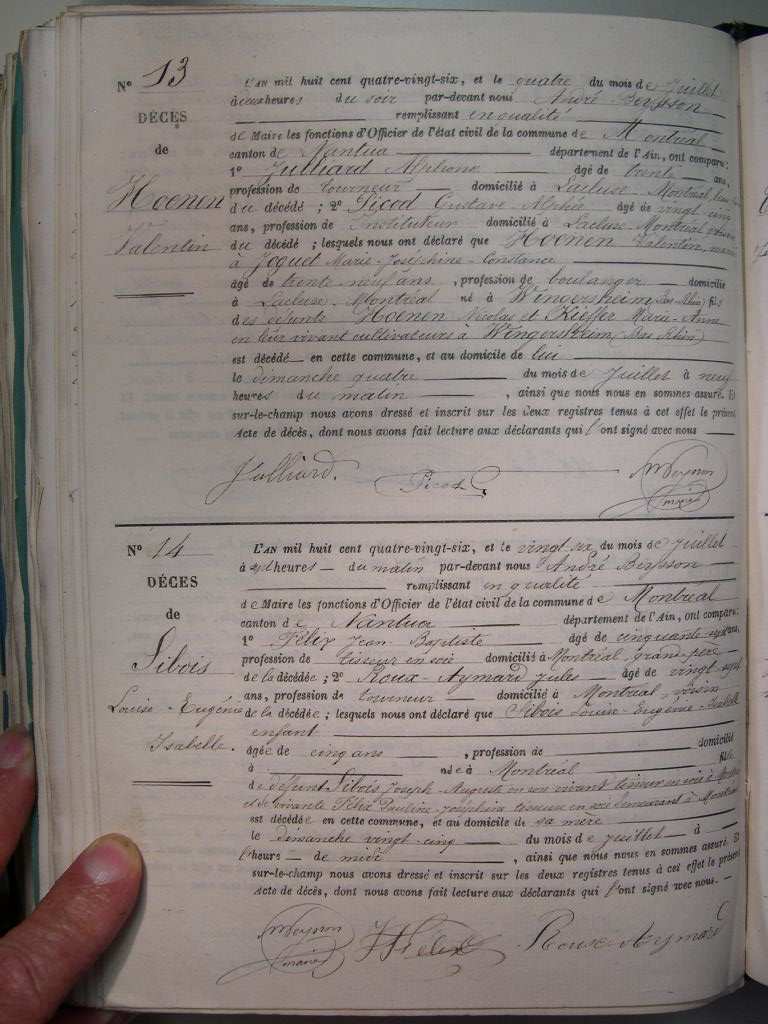 N° 13
DÉCES
de
Hoenen
Valentin
L'AN mil huit cent quatre-vingt-six, et le quatre du mois de Juillet
à deux heures du soir par-devant nous André
remplissant en qualité
de Maire les fonctions d'Officier de l'état civil de la commune de Montréal
canton de Nantua département de l'Ain, ont comparu:
1° Julliard âgé de trente ans,
profession de tourneur domicilié à Lacluse-Montréal,
du décédé ; 2° Picod Gustave âgé de vingt
ans, profession de Instituteur domicilié à Lacluse Montréal
du décédé ; lesquels nous ont déclaré que Hoenen Valentin,
à Joguet Marie-Joséphine-Constance
âgé de trente neuf ans, profession de boulanger domicilié
à Lacluse-Montréal né à Wingersheim (Bas-Rhin) fils
des défunts Hoenen Nicolas et Kieffer Marie-Anne
en leur vivant cultivateurs à Wingersheim (Bas Rhin)
est décédé en cette commune, et au domicile de lui
le dimanche quatre du mois de Juillet à neuf
heures du matin , ainsi que nous nous en sommes assuré. Et
sur-le-champ nous avons dressé et inscrit sur les deux registres tenus à cet effet le présent
Acte de décès, dont nous avons fait lecture aux déclarants qui l'ont signé avec nous
Julliard. Picod
maire
N° 14
DÉCES
de
Sibois
Louise-Eugénie
Isabelle.
L'AN mil huit cent quatre-vingt-six, et le vingt six du mois de Juillet
à heures du matin par-devant nous André
remplissant en qualité
de Maire les fonctions d'Officier de l'état civil de la commune de Montréal
canton de Nantua département de l'Ain, ont comparu:
1° Félix Jean Baptiste âgé de cinquante-sept ans,
profession de tisseur en soie domicilié à Montréal, grand-père
de la décédée ; 2° Roux-Aymard Jules âgé de vingt sept
ans, profession de tourneur domicilié à Montréal
de la décédée ; lesquels nous ont déclaré que Sibois Louise-Eugénie-Isabelle
enfant
âgée de cinq ans , profession de domicilié
à née à Montréal fille
de défunt Sibois Joseph-Auguste en son vivant tisseur en soie à
et de vivante Félix Pauline tisseuse en soie demeurant à Montréal
est décédée en cette commune, et au domicile de sa mère
le dimanche vingt-cinq du mois de juillet à
l'heure de midi , ainsi que nous nous en sommes assuré. Et
sur-le-champ nous avons dressé et inscrit sur les deux registres tenus à cet effet le présent
Acte de décès, dont nous avons fait lecture aux déclarants qui l'ont signé avec nous.
maire Félix Roux-Aymard